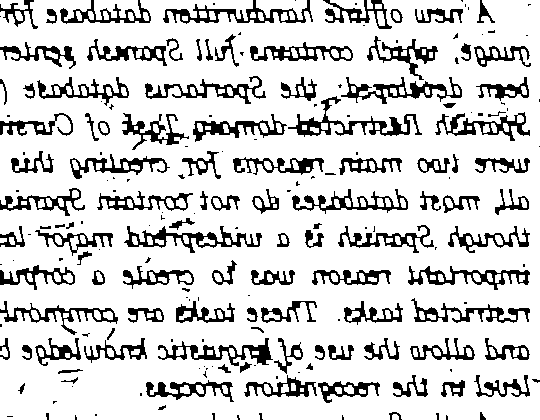 A new offline handwritten database for
guage, which contains full Spanish senten
been developed: the Spartacus database (
Spanish Restricted-domain Task of Cursiv
were two main reasons for creating this
all, most databases do not contain Spanis
though Spanish is a widespread major lan
important reason was to create a corpus
restricted tasks. These tasks are commonly
and allow the use of linguistic knowledge b
level in the recognition process.